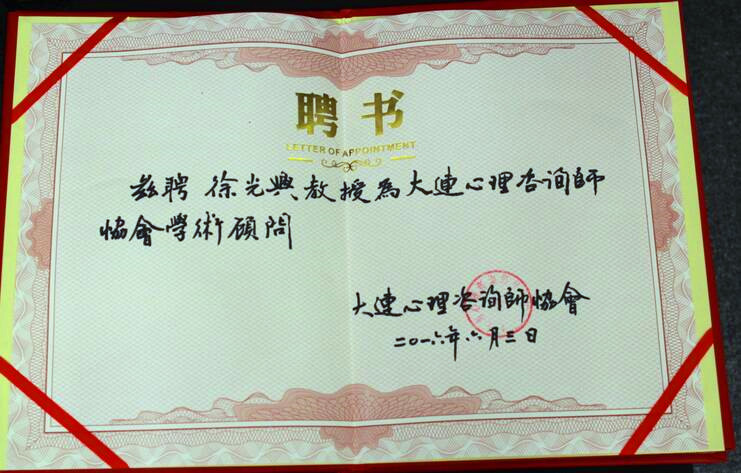 聘书
LETTER OF APPOINTMENT
兹聘 徐光興教授為大連心理咨询師
協會学術顧問
大連心理咨询師協會
二〇一六年六月三日